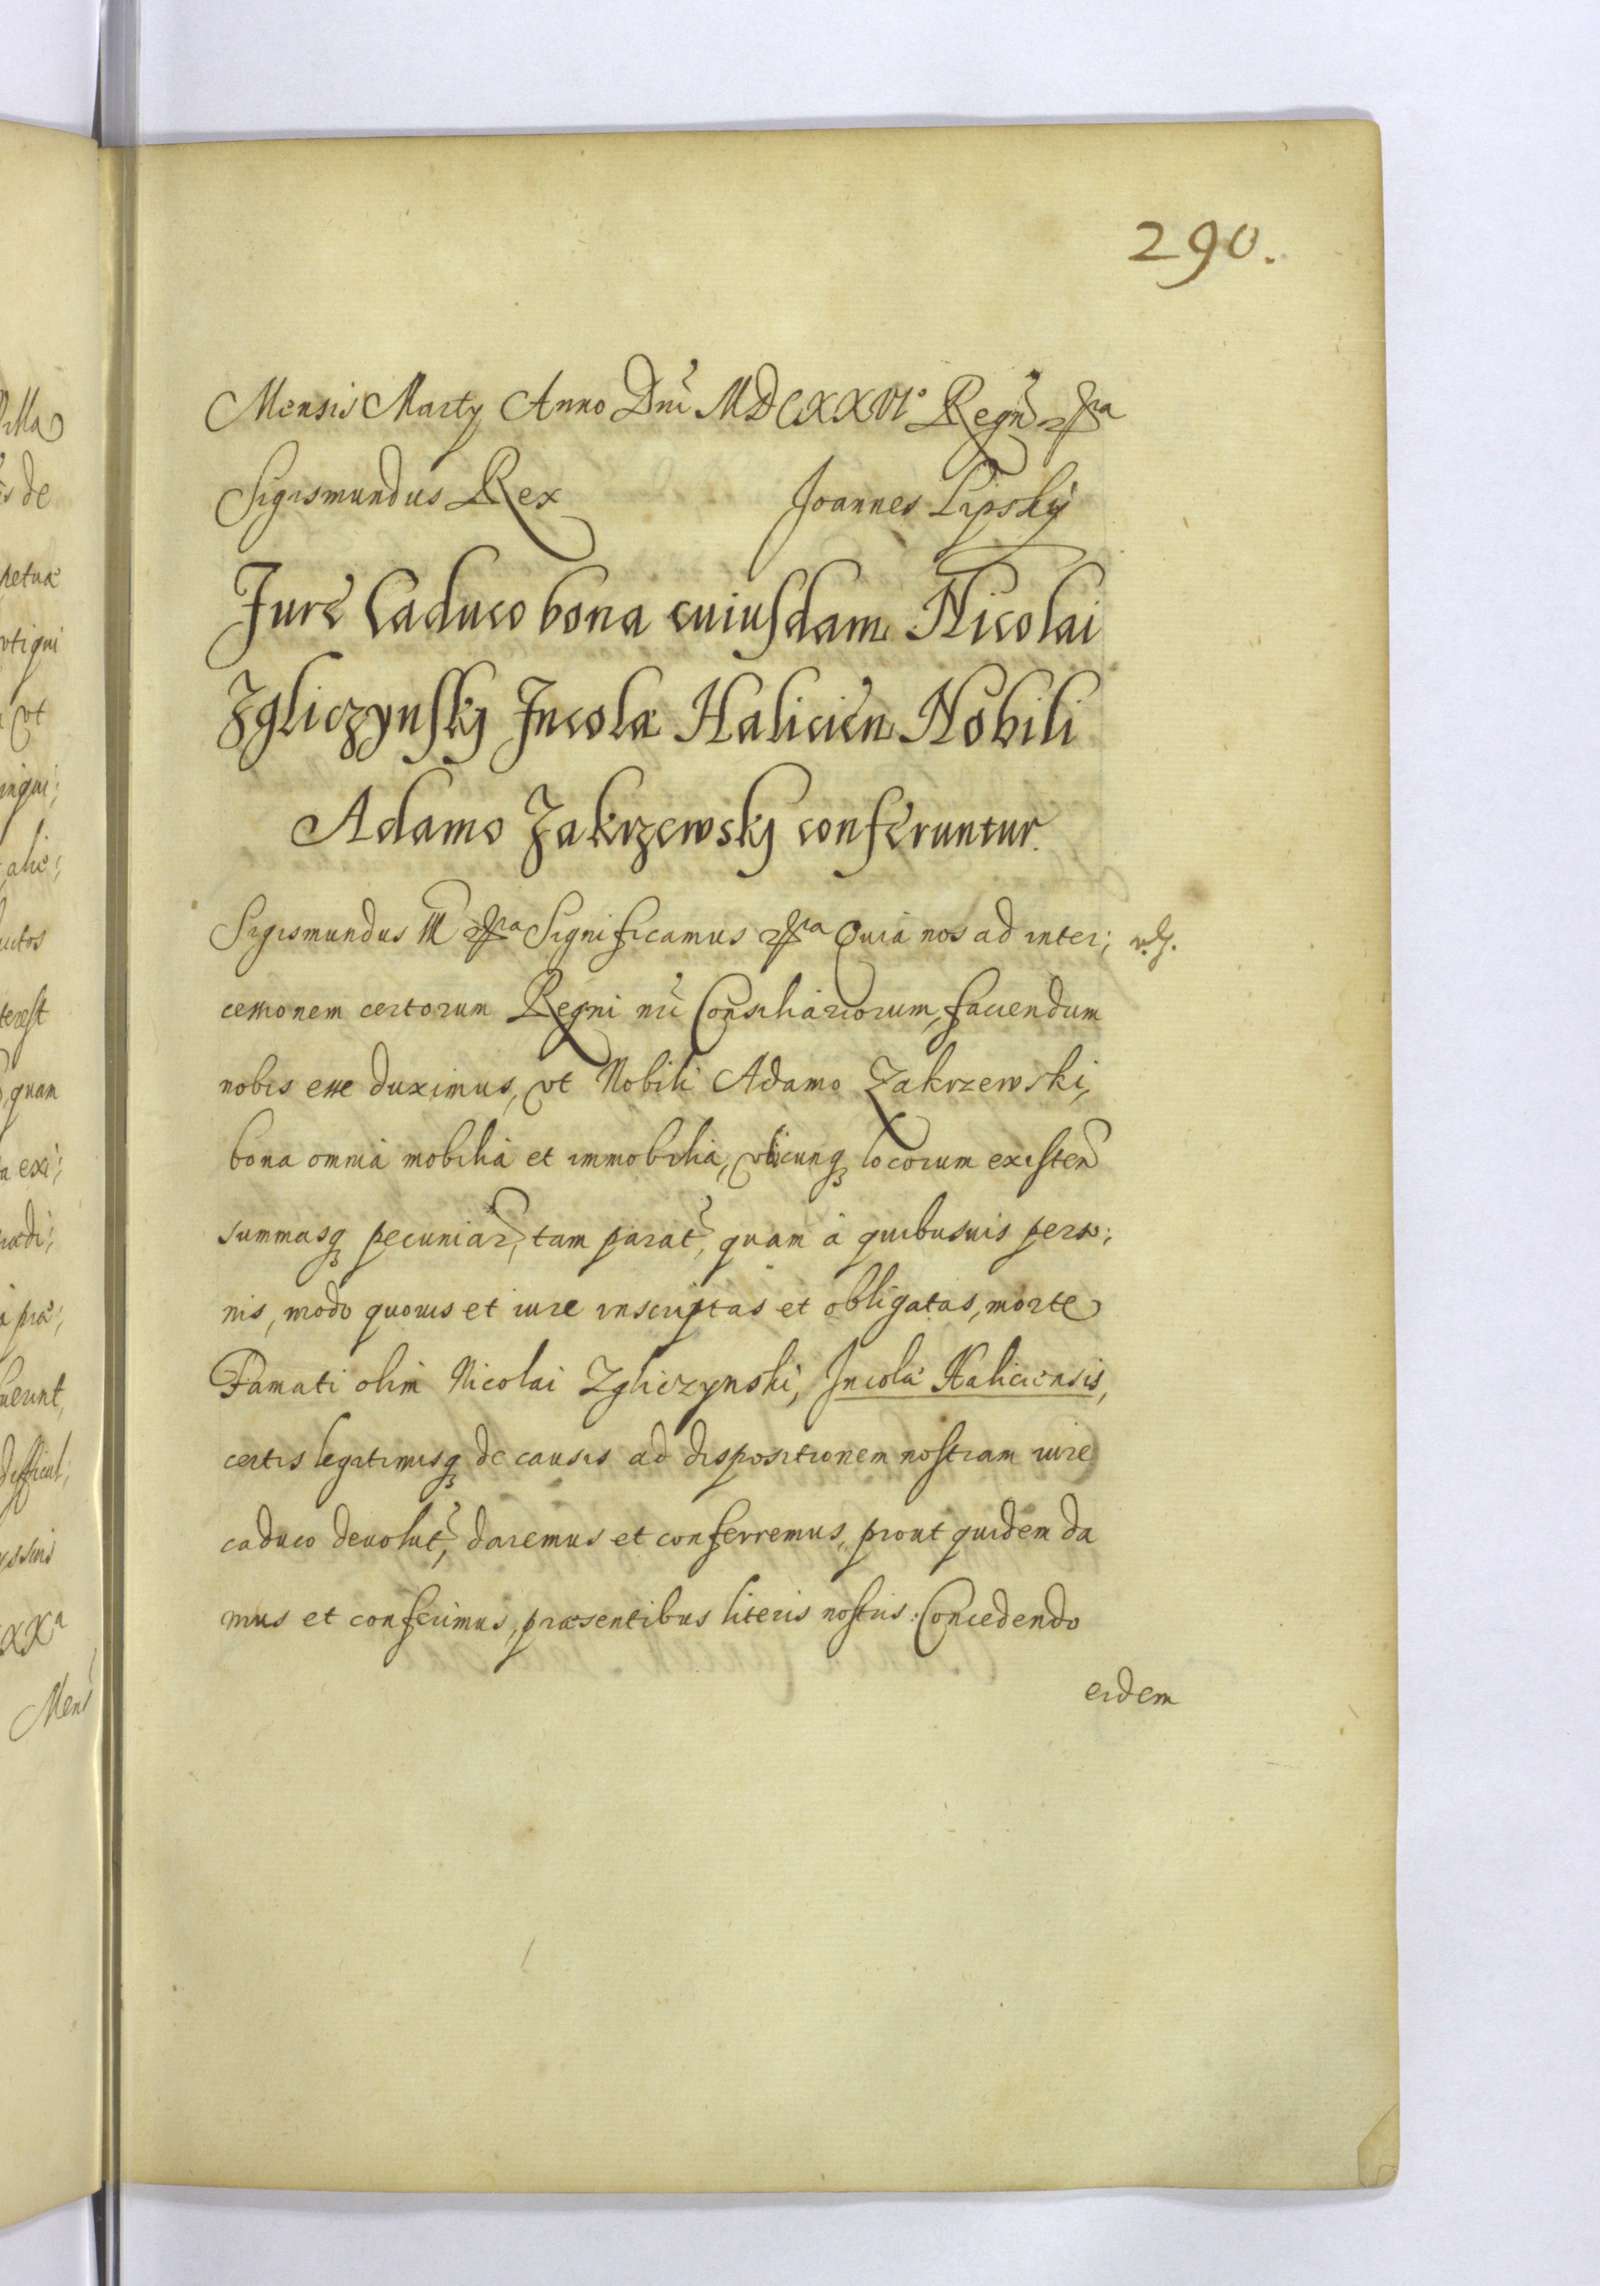 290.
Mensis Marty Anno Dni MDCXXVI° Regn
Sigismundus Rex Joannes Lipsky
Jure Caduco bona cuiusdam Nicolai
Zgliczynsky Incolæ Halicien Nobili
Adamo Zakrzewsky conferuntur.
Sigismundus III Significamus Quia nos ad inter;
cessionem certorum Regni nri Consiliariorum, faciendum
nobis esse duximus, vt Nobili Adamo Zakrzewski,
bona omnia mobilia et immobilia, vbicunq locorum existen
summasq pecuniar, tam parat, quam à quibusuis perso;
nis, modo quouis et iure inscriptas et obligatas, morte
Famati olim Nicolai Zgliczynski, Incolæ Haliciensis,
certis legitimisq de causis ad dispositionem nostram iure
caduco deuolut, daremus et conferremus, prout quidem da
mus et conferimus, præsentibus literis nostris: Concedendo
eidem